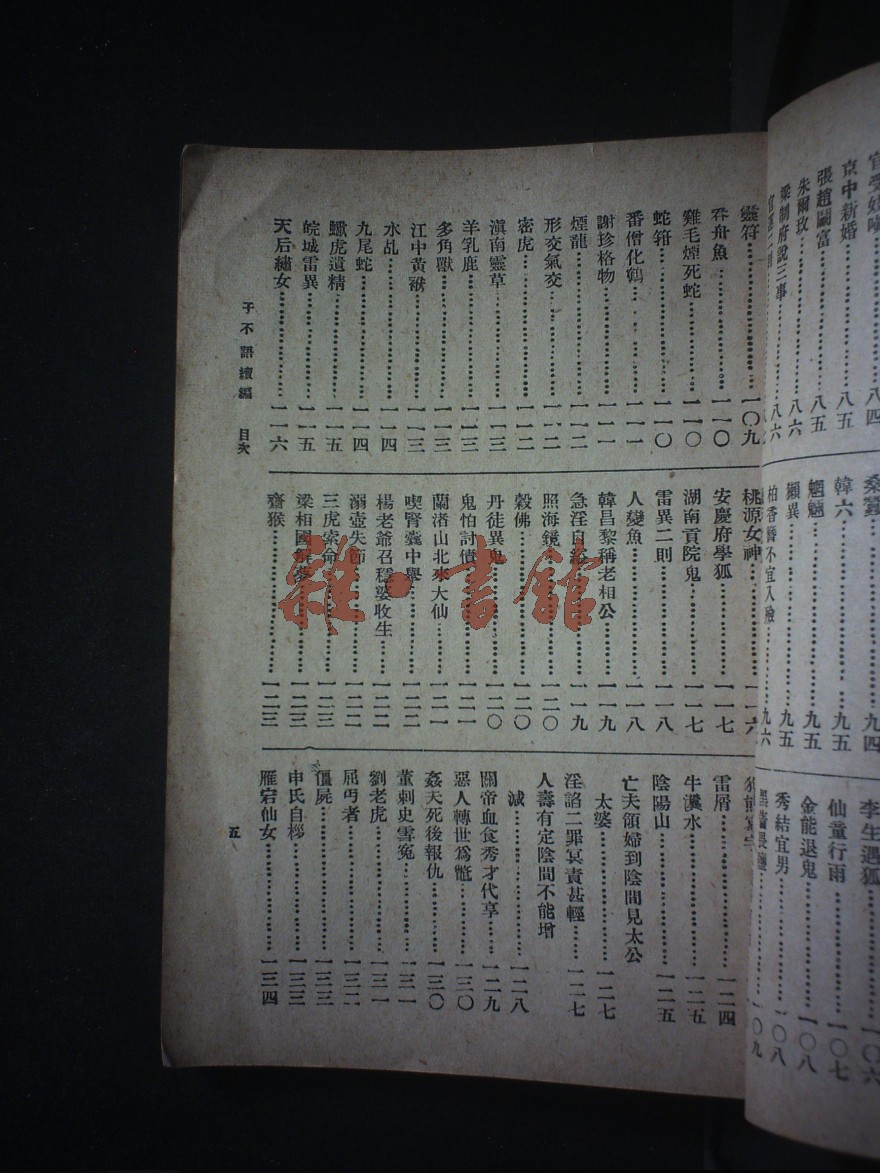 京中新婚……八五
張趙鬪富……八五
朱爾玫……八六
梁制府說三事……八六
桑蠶……九四
韓六……九五
魍魎……九五
獺異……九五
柏香簪不宜入殮……九六
李生遇狐……一〇六
仙童行雨……一〇七
金能退鬼……一〇八
秀結宜男……一〇八
靈符……一〇九
吞舟魚……一一〇
雞毛煙死蛇……一一〇
蛇箝……一一〇
番僧化鶴……一一一
謝珍格物……一一一
煙龍……一一二
形交氣交……一一二
密虎……一一二
滇南靈草……一一三
羊乳鹿……一一三
多角獸……一一三
江中黃猴……一一三
水乩……一一四
九尾蛇……一一四
蠍虎遺精……一一五
皖城雷異……一一五
天后繡女……一一六
桃源女神……一一六
安慶府學狐……一一七
湖南貢院鬼……一一七
雷異二則……一一八
人變魚……一一八
韓昌黎稱老相公……一一九
急淫自……一一九
照海鏡……一二〇
穀佛……一二〇
丹徒異鬼……一二〇
鬼怕討債……一二一
蘭渚山北來大仙……一二一
喫腎囊中舉……一二二
楊老爺召穩婆收生……一二二
溺壺失節……一二二
三虎索命……一二三
梁相國……一二三
齋猴……一二三
雷屑……一二四
牛瀵水……一二五
陰陽山……一二五
亡夫領婦到陰間見太公
太婆……一二七
淫諂二罪冥責甚輕……一二七
人壽有定陰間不能增
減……一二八
關帝血食秀才代享……一二九
惡人轉世爲鼈……一三〇
姦夭死後報仇……一三〇
董刺史雪冤……一三一
劉老虎……一三一
屈丐者……一三二
僵屍……一三三
申氏自櫟……一三三
雁宕仙女……一三四
子不語續編 目次
五
雜·書館